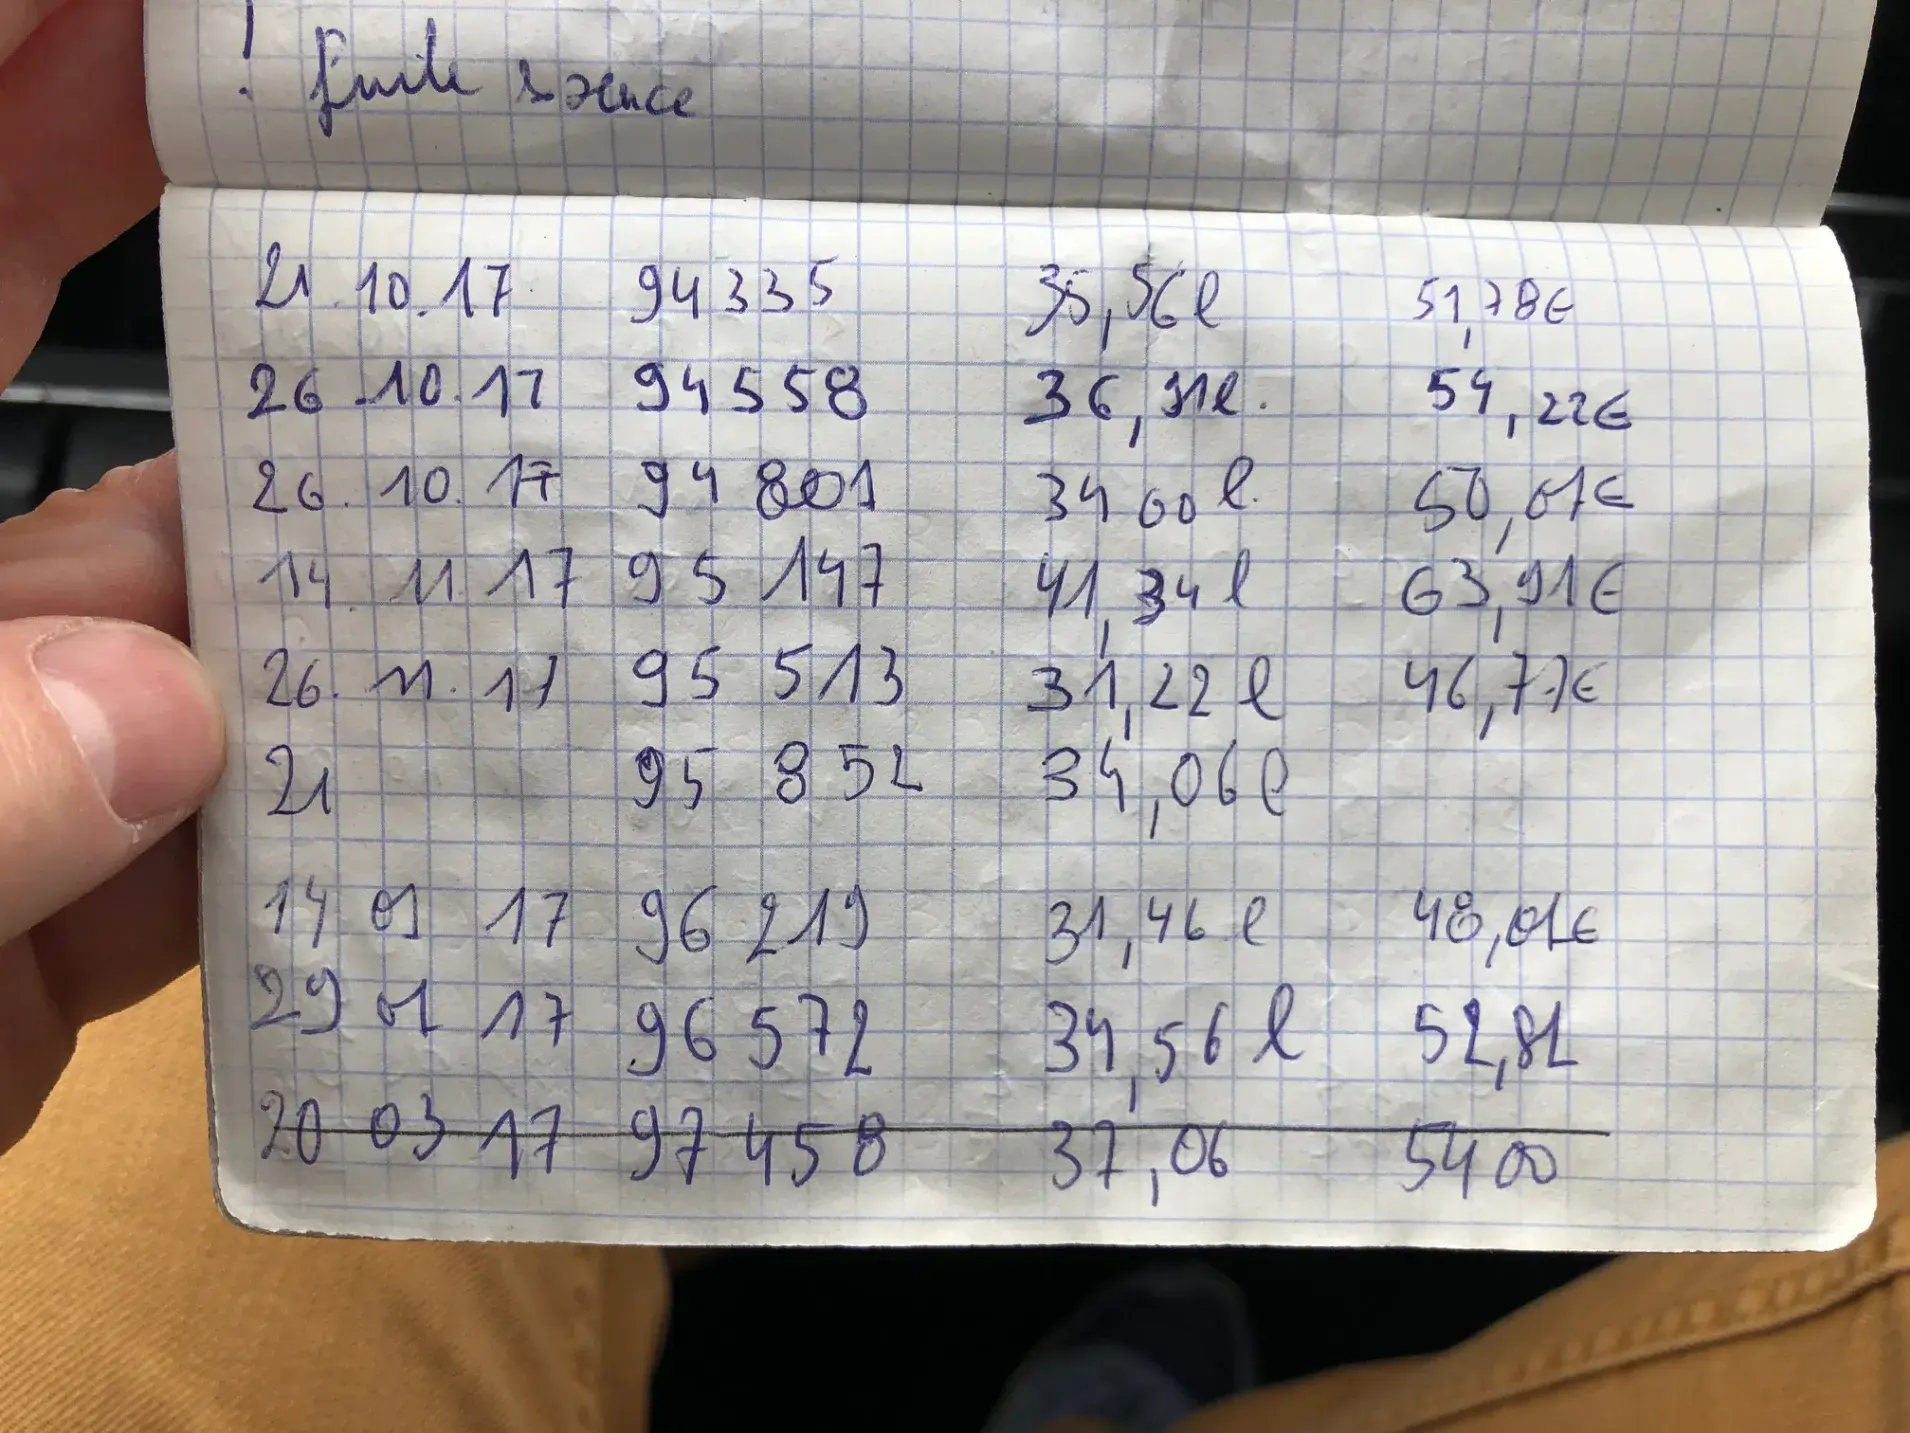 ! fuite essence
21.10.17 94335 35,56l 51,78€
26.10.17 94558 36,91l. 54,22€
26.10.17 94 801 34 60l. 50,01€
14.11.17 95 147 41,34l 63,91€
26.11.17 95 513 31,22l 46,77€
21 95 852 34,06l
14 01 17 96 219 31,46l 48,01€
29 01 17 96 572 34,56l 52,81
20 03 17 97 458 37,06 5400